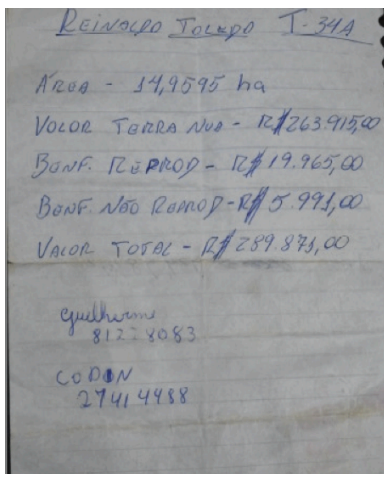 REINOLDO TOLEDO T-34A
ÁREA - 14,9595 ha
VALOR TERRA NUA - R$263.915,00
BENF. REPROD - R$19.965,00
BENF. NÃO REPROD - R$5.991,00
VALOR TOTAL - R$289.871,00
Guilherme
81228083
CODIN
27414988